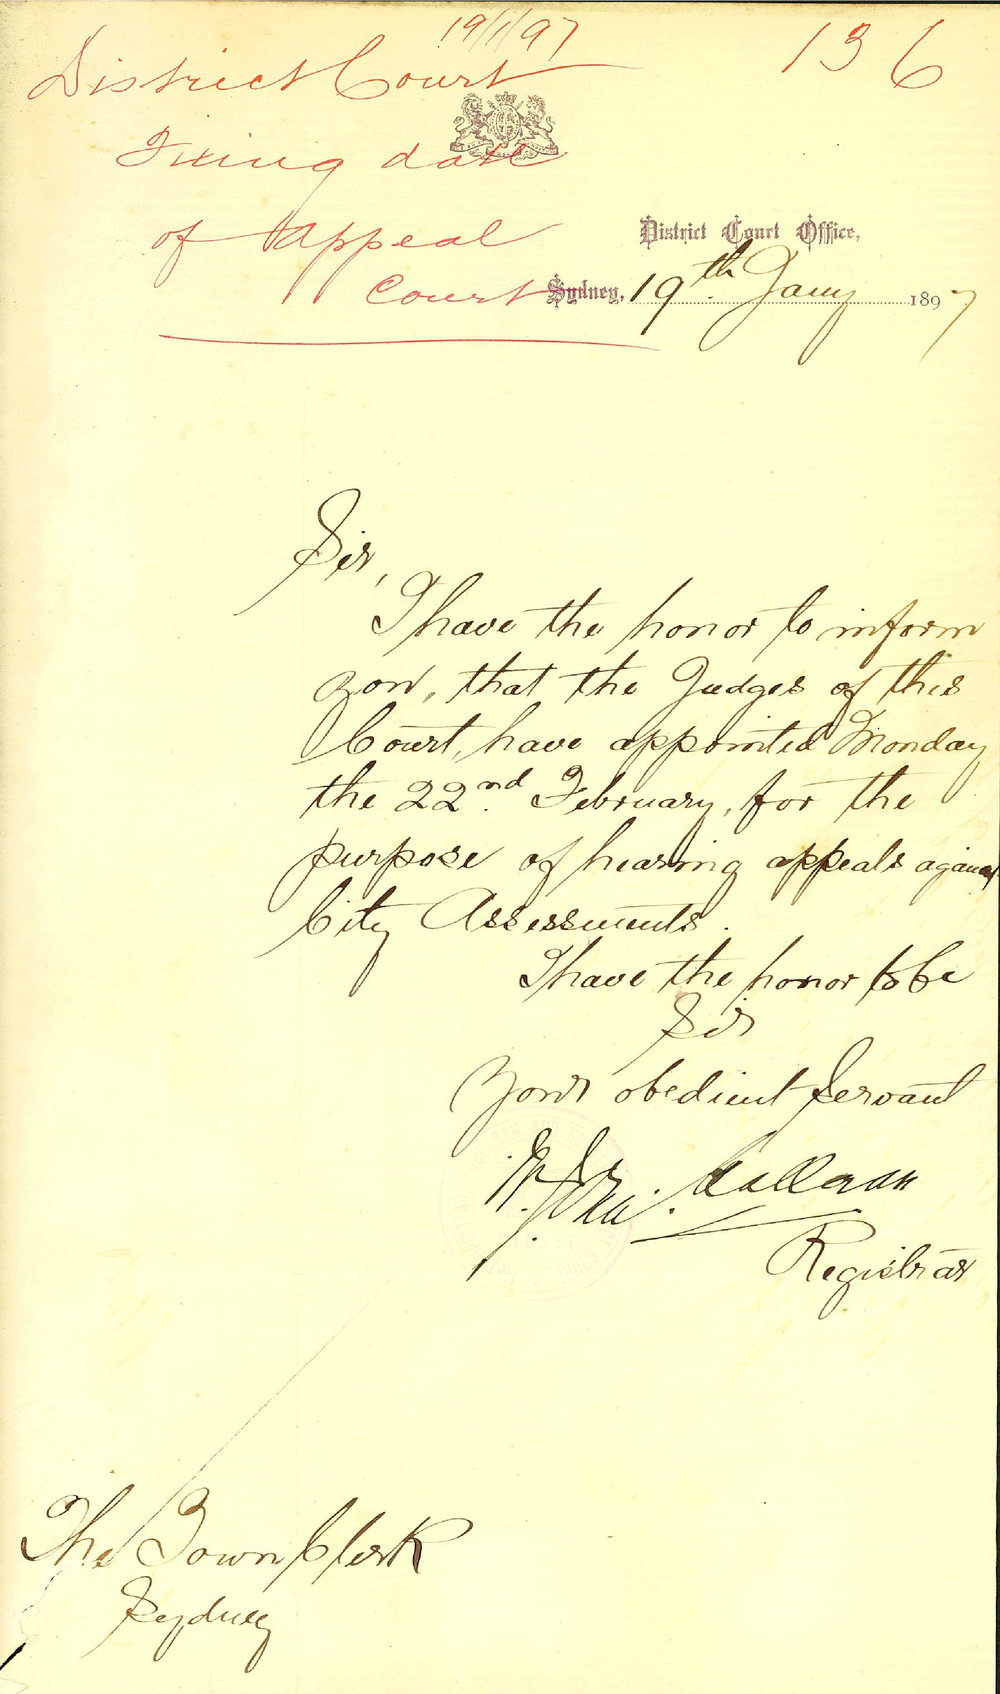 19/1/97
136
District Court
Fixing date
of Appeal
Court
District Court Office,
Sydney, 19th Jany 1897
Sir,
I have the honor to inform
you, that the Judges of this
Court, have appointed Monday
the 22nd February, for the
purpose of hearing appeals against
City Assessments.
I have the honor to be
Sir
Your obedient Servant
Registrar
The Town Clerk
Sydney